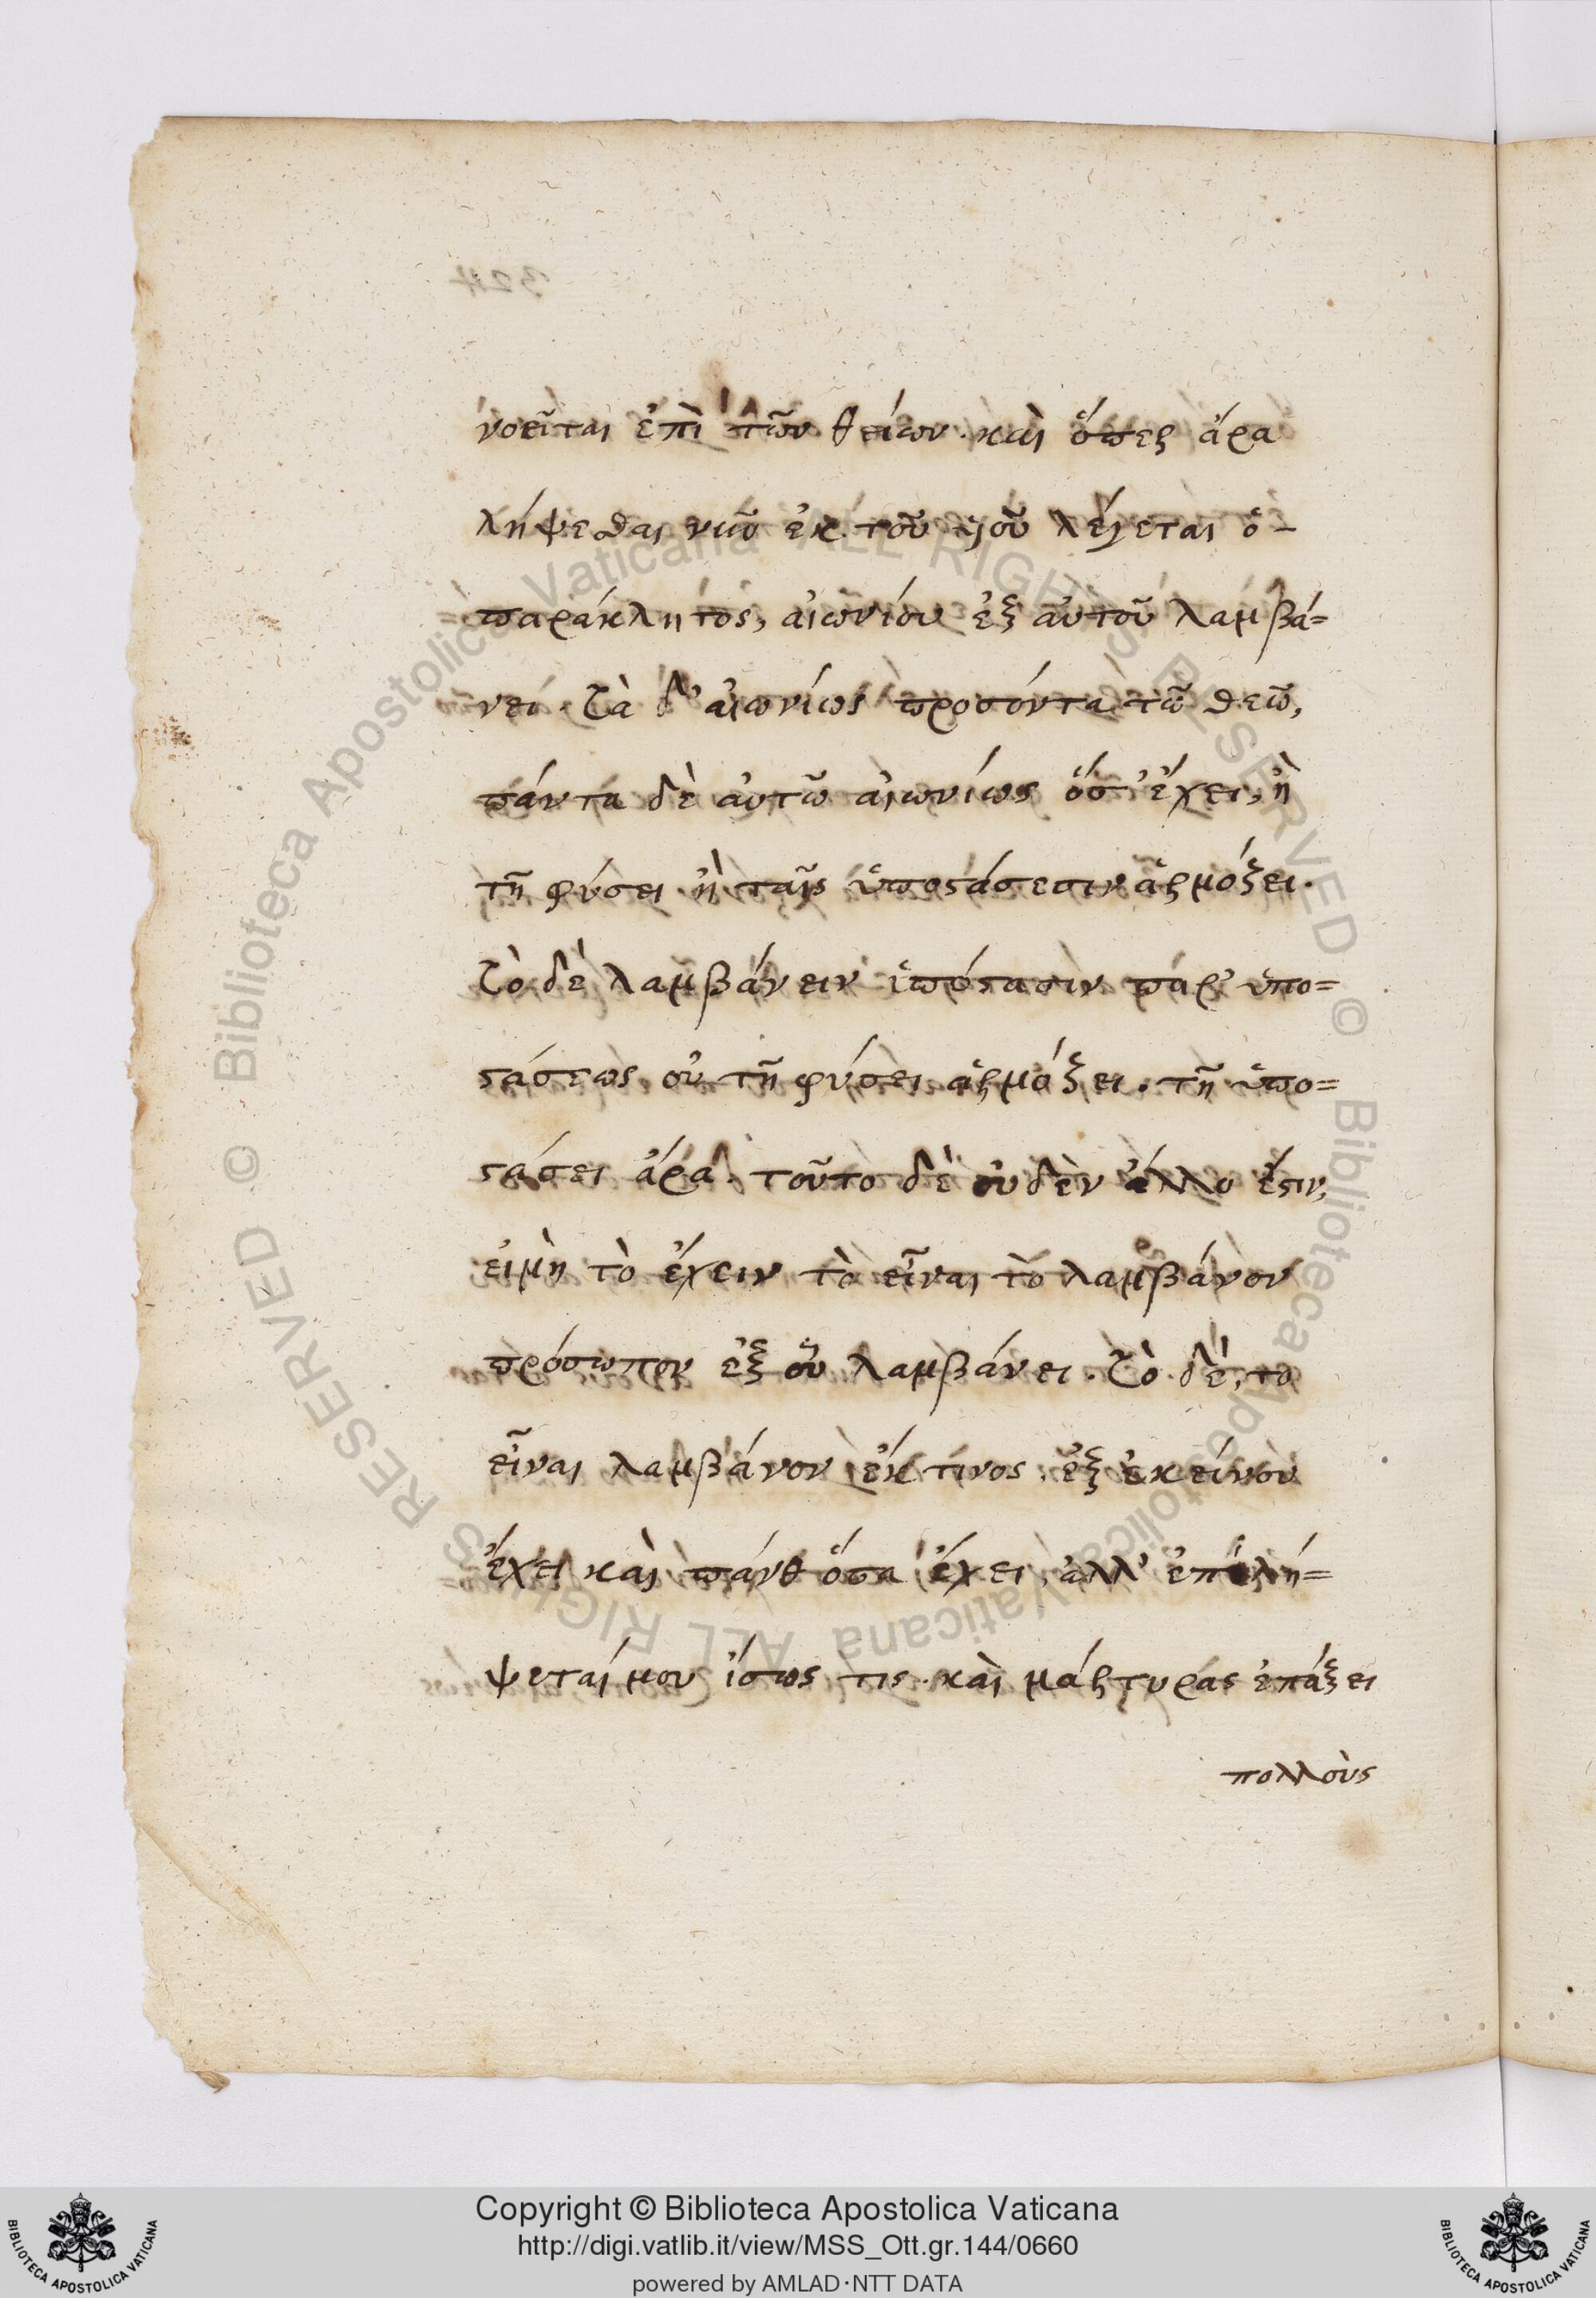 νοεῖται ἐπὶ τῶν θείων. καὶ ὅπερ ἄρα
λήψεσθαι νῦν ἐκ τοῦ υἱοῦ λέγεται ὁ-
παράκλητος, αἰωνίου ἐξ αὐτοῦ λαμβά=
νει. τὰ δ' αἰωνίως προσόντα τῶ θεῶ,
πάντα δὲ αὐτῶ αἰωνίως ὅσ' ἔχει, ἢ
τῆ φύσει ἢ ταῖς ὑποστάσεσιν ἁρμόξει.
τὸ δὲ λαμβάνειν ὑπόστασιν παρ' ὑπο=
στάσεως οὐ τῆ φύσει ἁρμόξει. τῆ ὑπο=
στάσει ἄρα. τοῦτο δὲ οὐδὲν ἄλλο ἐστιν,
εἰμὴ τὸ ἔχειν τὸ εἶναι τὸ λαμβάνον
πρόσωπον ἐξ οὗ λαμβάνει. τὸ δὲ, το
εἶναι λαμβάνον ἐκ τίνος, ἐξ ἐκείνου
ἔχει καὶ πάνθ ὅσα ἔχει, ἀλλ' ἐπιλή=
ψεταί μου ἴσως τις. καὶ μάρτυρας ἐπάξει
πολλοὺς
324
Copyright © Biblioteca Apostolica Vaticana
http://digi.vatlib.it/view/MSS_Ott.gr.144/0660
powered by AMLAD·NTT DATA
BIBLIOTECA APOSTOLICA VATICANA
BIBLIOTECA APOSTOLICA VATICANA
© Biblioteca Apostolica Vaticana ALL RIGHTS RESERVED © Biblioteca Apostolica Vaticana ALL RIGHTS RESERVED